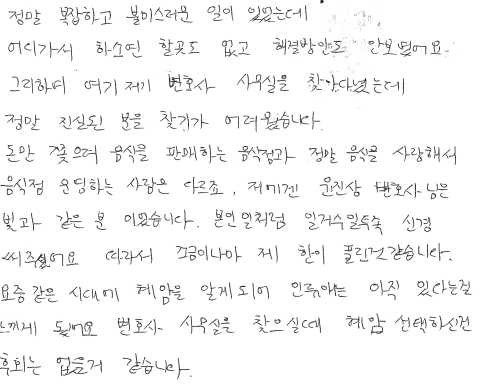 정말 복잡하고 불미스러운 일이 있었는데
어디가서 하소연 할곳도 없고 해결방안도 안보였어요
그리하여 여기저기 변호사 사무실을 찾아다녔는데
정말 진실된 분을 찾기가 어려웠습니다.
돈만 쫓으며 음식을 판매하는 음식점과 정말 음식을 사랑해서
음식점 운영하는 사람은 다르죠, 저에겐 윤진상 변호사님은
빛과 같은 분 이었습니다. 본인일처럼 일거수일투족 신경
써주셨어요 따라서 조금이나마 제 한이 풀린것같습니다.
요즘같은 시대에 혜암을 알게되어 인류애는 아직 있다는걸
느끼게 됐어요 변호사 사무실을 찾으실때 혜암 선택하신건
후회는 없을거 같습니다.